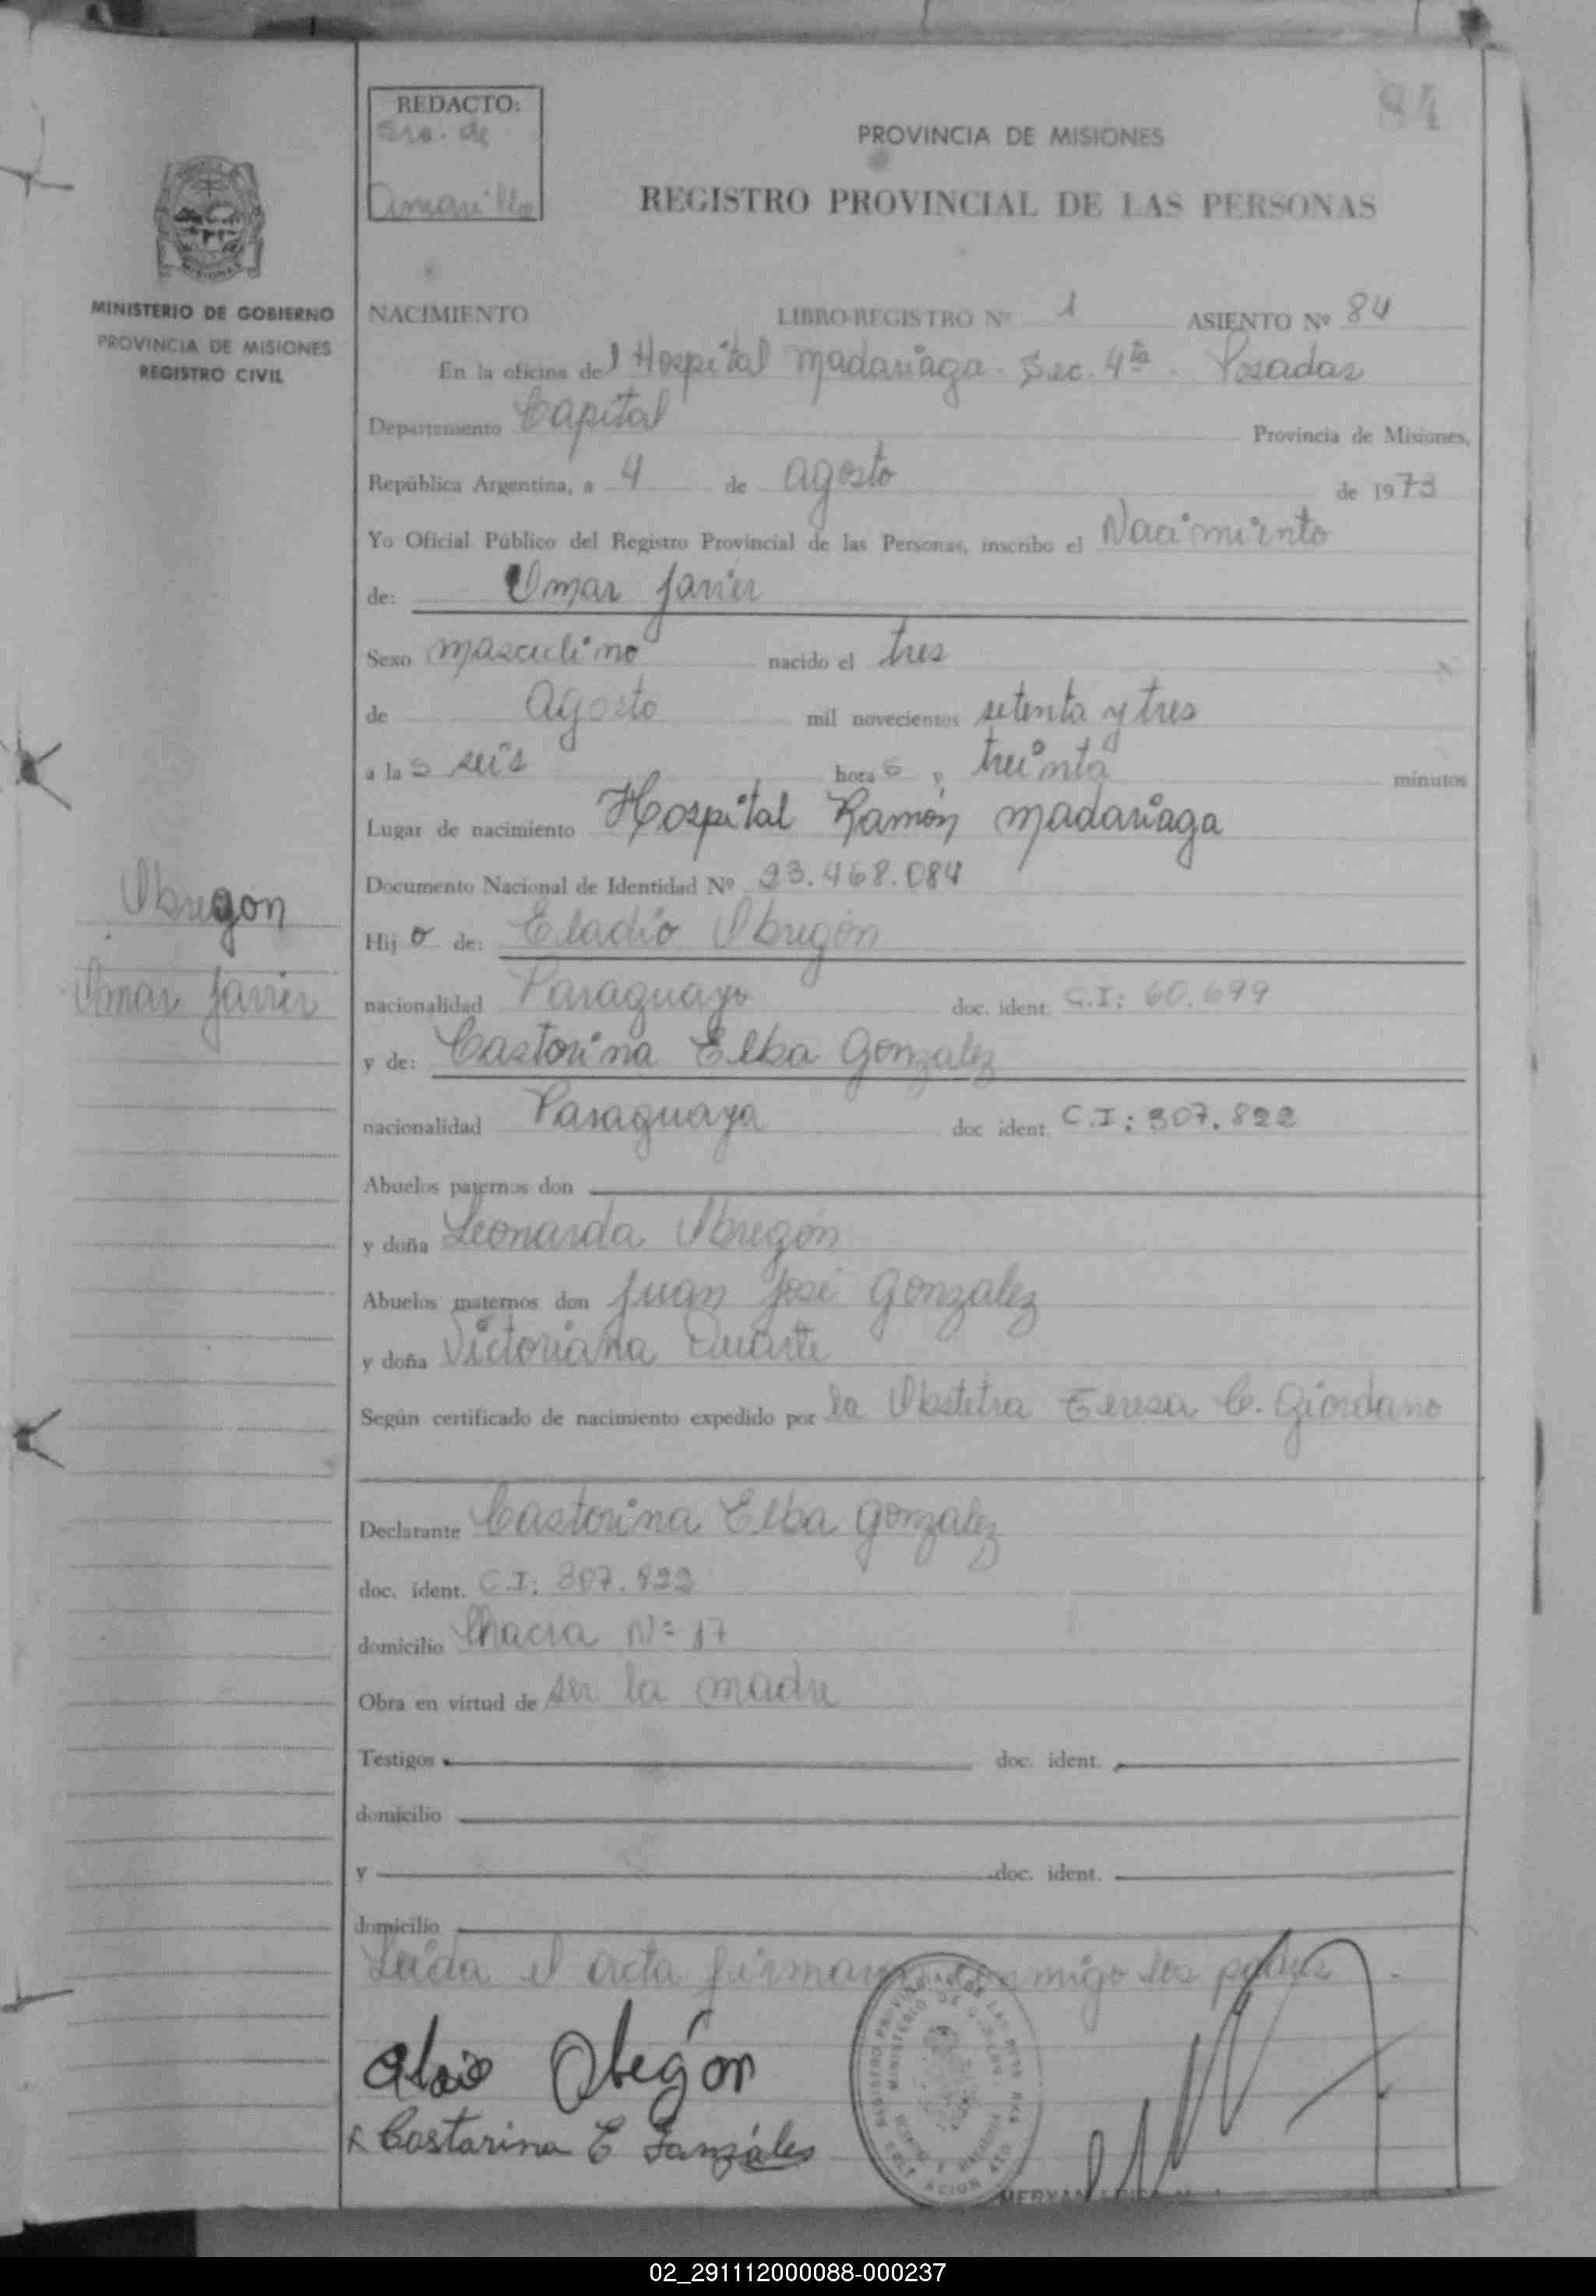 84
REDACTO:
Sra. de
Amarilla
PROVINCIA DE MISIONES
REGISTRO PROVINCIAL DE LAS PERSONAS
MINISTERIO DE GOBIERNO
PROVINCIA DE MISIONES
REGISTRO CIVIL
NACIMIENTO LIBRO-REGISTRO Nº 1 ASIENTO Nº 84
En la oficina del Hospital Madariaga - Sec. 4ta - Posadas
Departamento Capital Provincia de Misiones,
República Argentina, a 4 de agosto de 1973
Yo Oficial Público del Registro Provincial de las Personas, inscribo el Nacimiento
de: Omar Javier
Sexo masculino nacido el tres
de agosto mil novecientos setenta y tres
a las seis horas y treinta minutos
Lugar de nacimiento Hospital Ramón Madariaga
Documento Nacional de Identidad Nº 23.468.084
Obregón
Omar Javier
Hijo de: Eladio Obregón
nacionalidad Paraguayo doc. ident. C.I: 60.699
y de: Castorina Elba Gonzalez
nacionalidad Paraguaya doc ident. C.I: 307.822
Abuelos paternos don
y doña Leonarda Obregón
Abuelos maternos don Juan José Gonzalez
y doña Victoriana Duarte
Según certificado de nacimiento expedido por la Obstetra Teresa C. Giordano
Declarante Castorina Elba Gonzalez
doc. ident. C.I: 307.822
domicilio Chacra Nº 17
Obra en virtud de ser la madre
Testigos doc. ident.
domicilio
y doc. ident.
domicilio
Leida el acta firman conmigo los padres.
Obregón
Castorina E Gonzáles
02_291112000088-000237